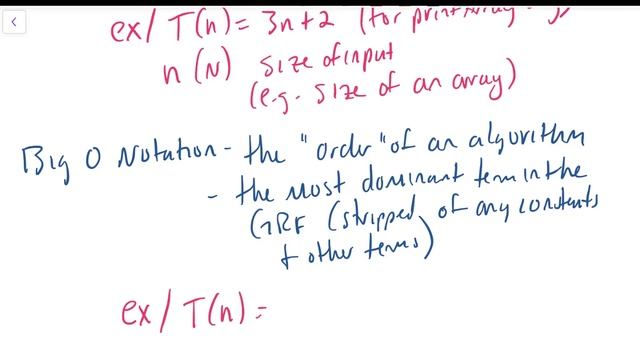 ex/ T(n) = 3n+2 (for print
n (N) size of input
(e.g. size of an array)
Big O Notation - the "order" of an algorithm
- the most dominant term in the
GRF (stripped of any constants
+ other terms)
ex/ T(n) =